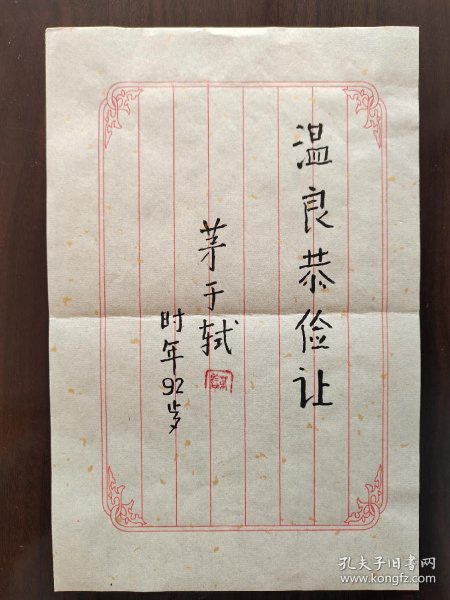 温良恭俭让
茅于轼
时年92岁
孔夫子旧书网
www.kongfz.com